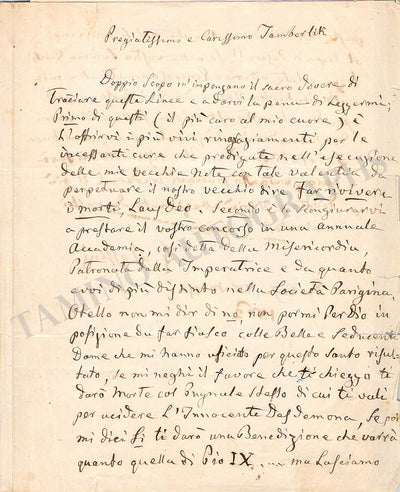 Pregiatissimo e Carissimo Tamberlik
Doppio Scopo m'impongano il sacro dovere di
Tracciare queste Linee e a darvi la pena di Leggermi;
Primo di questi (il più caro al mio cuore) è
L'offrirvi i più vivi ringraziamenti per le
incessanti cure che prodigate nell'esecuzione
delle mie vecchie Note con tale valentia
perpetuare il nostro vecchio dire far rivivere
i morti, Laus Deo. Secondo è lo scongiurarvi
a prestare il vostro concorso in una annuale
Accademia, così detta della Misericordia,
Patronata dalla Imperatrice e da quanto
evvi di più distinto nella Società Parigina.
Otello non mi dir di no, non pormi per Dio in
posizione da far fiasco colle Belle e Seducenti
Dame che mi hanno uficiato per questo Santo risul-
tato, se mi neghi il favore che ti chieggo ti
darò Morte col Pugnale stesso di cui ti vali
per uccidere L'Innocente Desdemona, Se poi
mi dici Si ti darò una Benedizione che varrà
quanto quella di Pio IX, ... ma Lasciamo
TAMINO AUTOGRAPHS